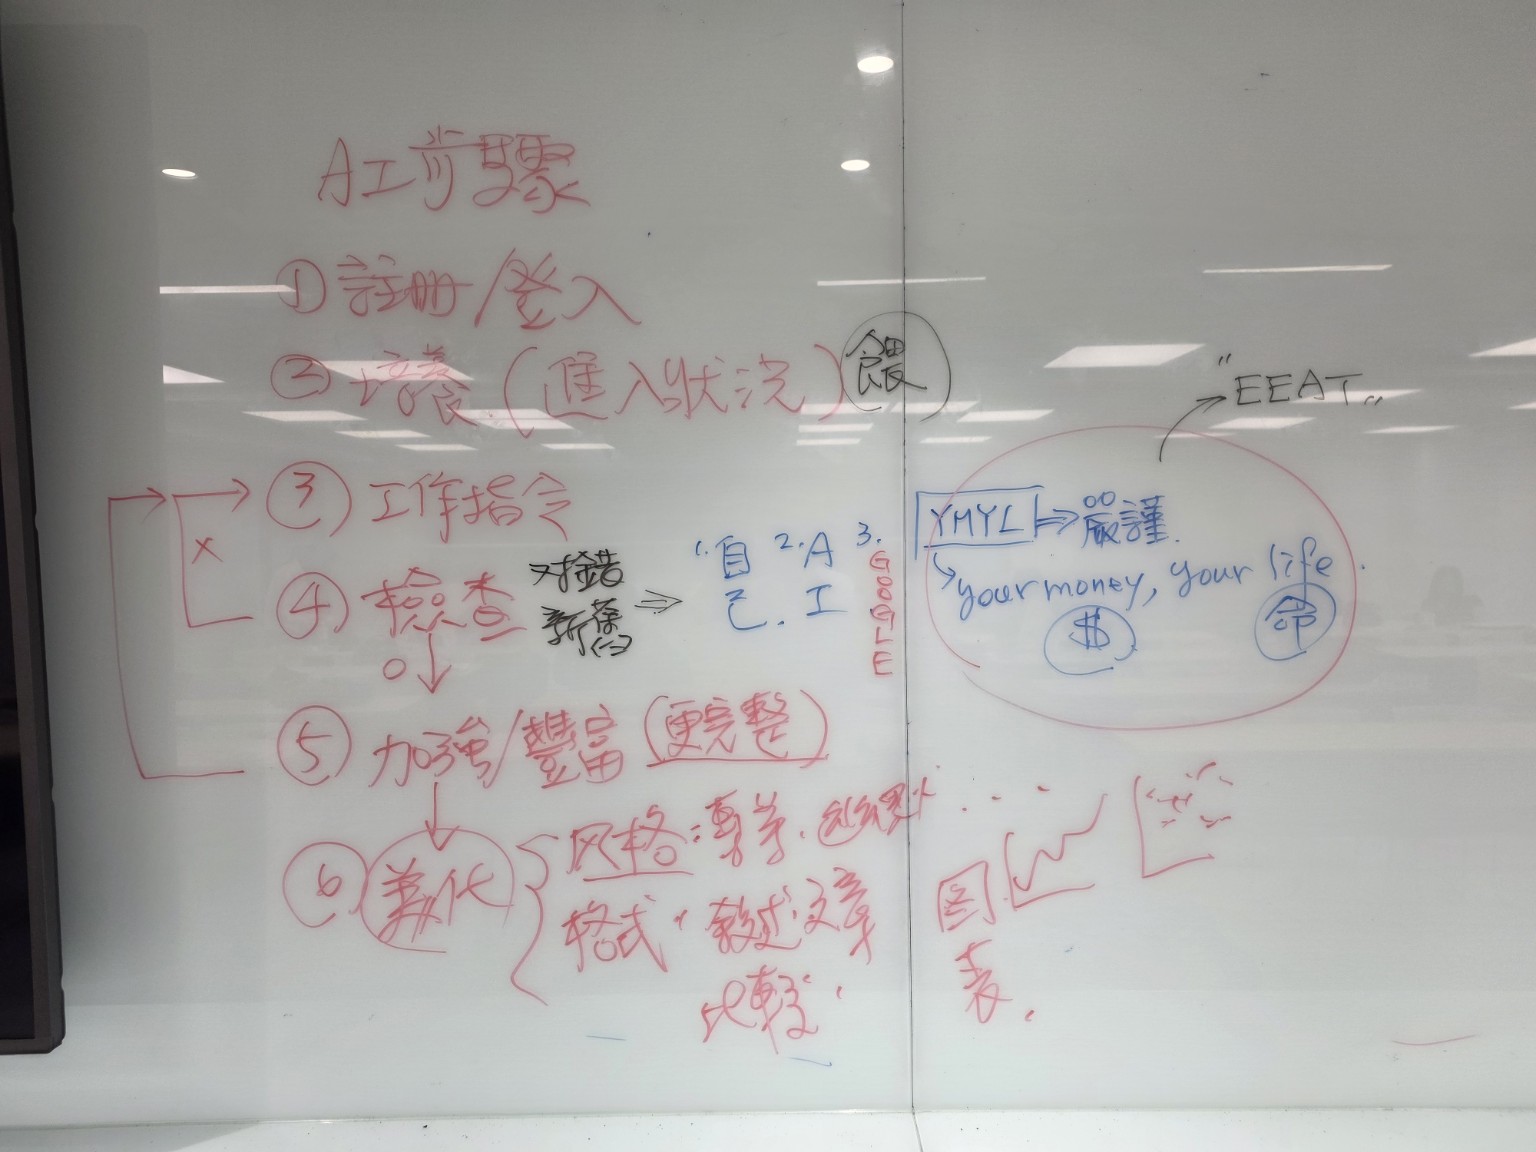 AI步驟
① 註冊/登入
② 培養(進入狀況) 餵
"EEAT"
③ 工作指令
YMYL ⇒ 嚴謹.
your money, your life.
$ 命
④ 檢查 对錯 新舊 ⇒ 1. 自己. 2. AI 3. GOOGLE
X
O
⑤ 加強/豐富(更完整)
⑥ 美化
风格: 專業. 幽默 . . .
格式. 敘述. 文章
比較.
图表.